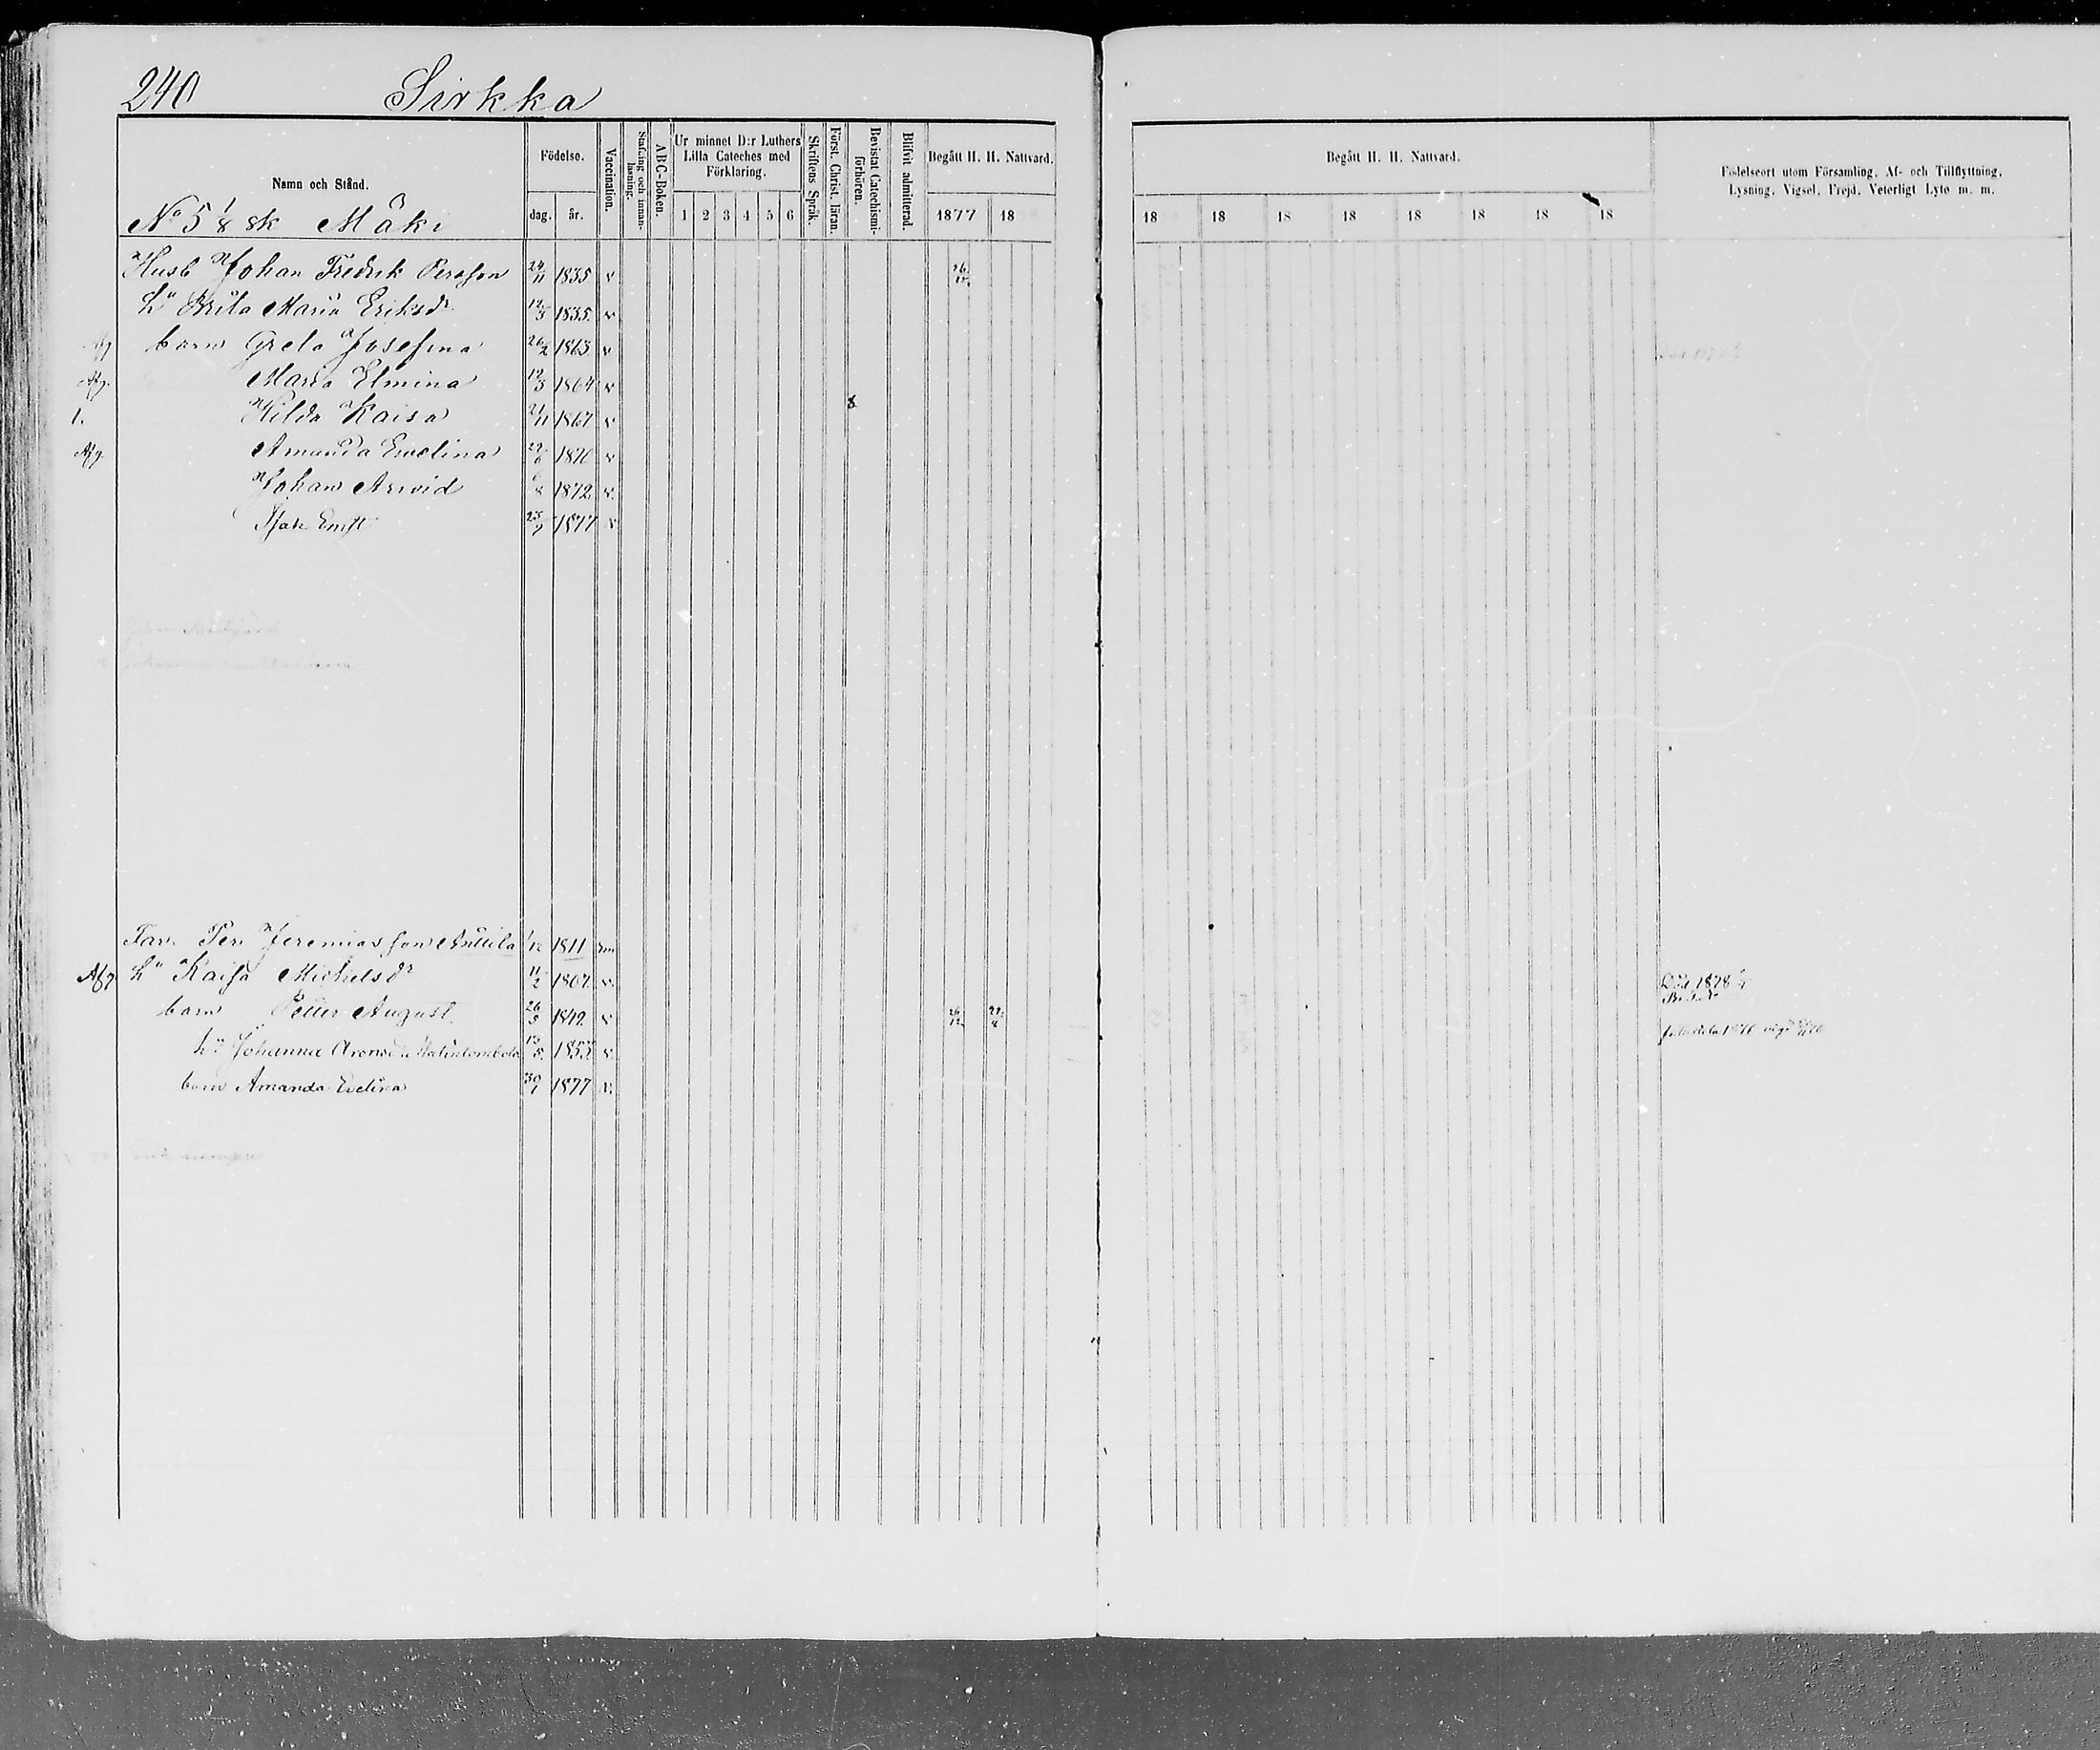 240 Sirkka
Namn och Stånd.
Födelse.
dag. år.
Vaccination.
Stafning och innanläsning.
ABC-Boken.
Ur minnet D:r Luthers Lilla Cateches med Förklaring.
1 2 3 4 5 6
Skriftens Språk.
Först. Christ. läran.
Bevistat Catechismiförhören.
Blifvit admitterad.
Begått H. H. Nattvard.
1877 18
Begått H. H. Nattvard.
18 18 18 18 18 18 18 18
Födelseort utom Församling, Af- och Tillflyttning,
Lysning, Vigsel, Frejd, Veterligt Lyte m. m.
No 5 1/8 sk Mäki
Husb Johan Fredrik Persson 24/11 1835 v 26/12
hu Brita Maria Eriksdr 12/3 1835. v
barn Greta Josefina 26/2 1863 v
Afg. Maria Elmina 12/3 1864 v
1. Hilda Kaisa 21/11 1867 v 8
Afg. Amanda Evelina 22/6 1870 v
Johan Arvid 6/8 1872 v.
Isak Ernst 23/7 1877 v
Far Per Jeremiasson Anttila 1/12 1811
Afg hu Kaisa Michelsdr 11/2 1807 v. Död 1878
barn Petter August 26/5 1849. v 26/12 22/4
hu Johanna Aronsdr 13/5. 1855. v.
barn Amanda Evelina 30/1 1877 v.